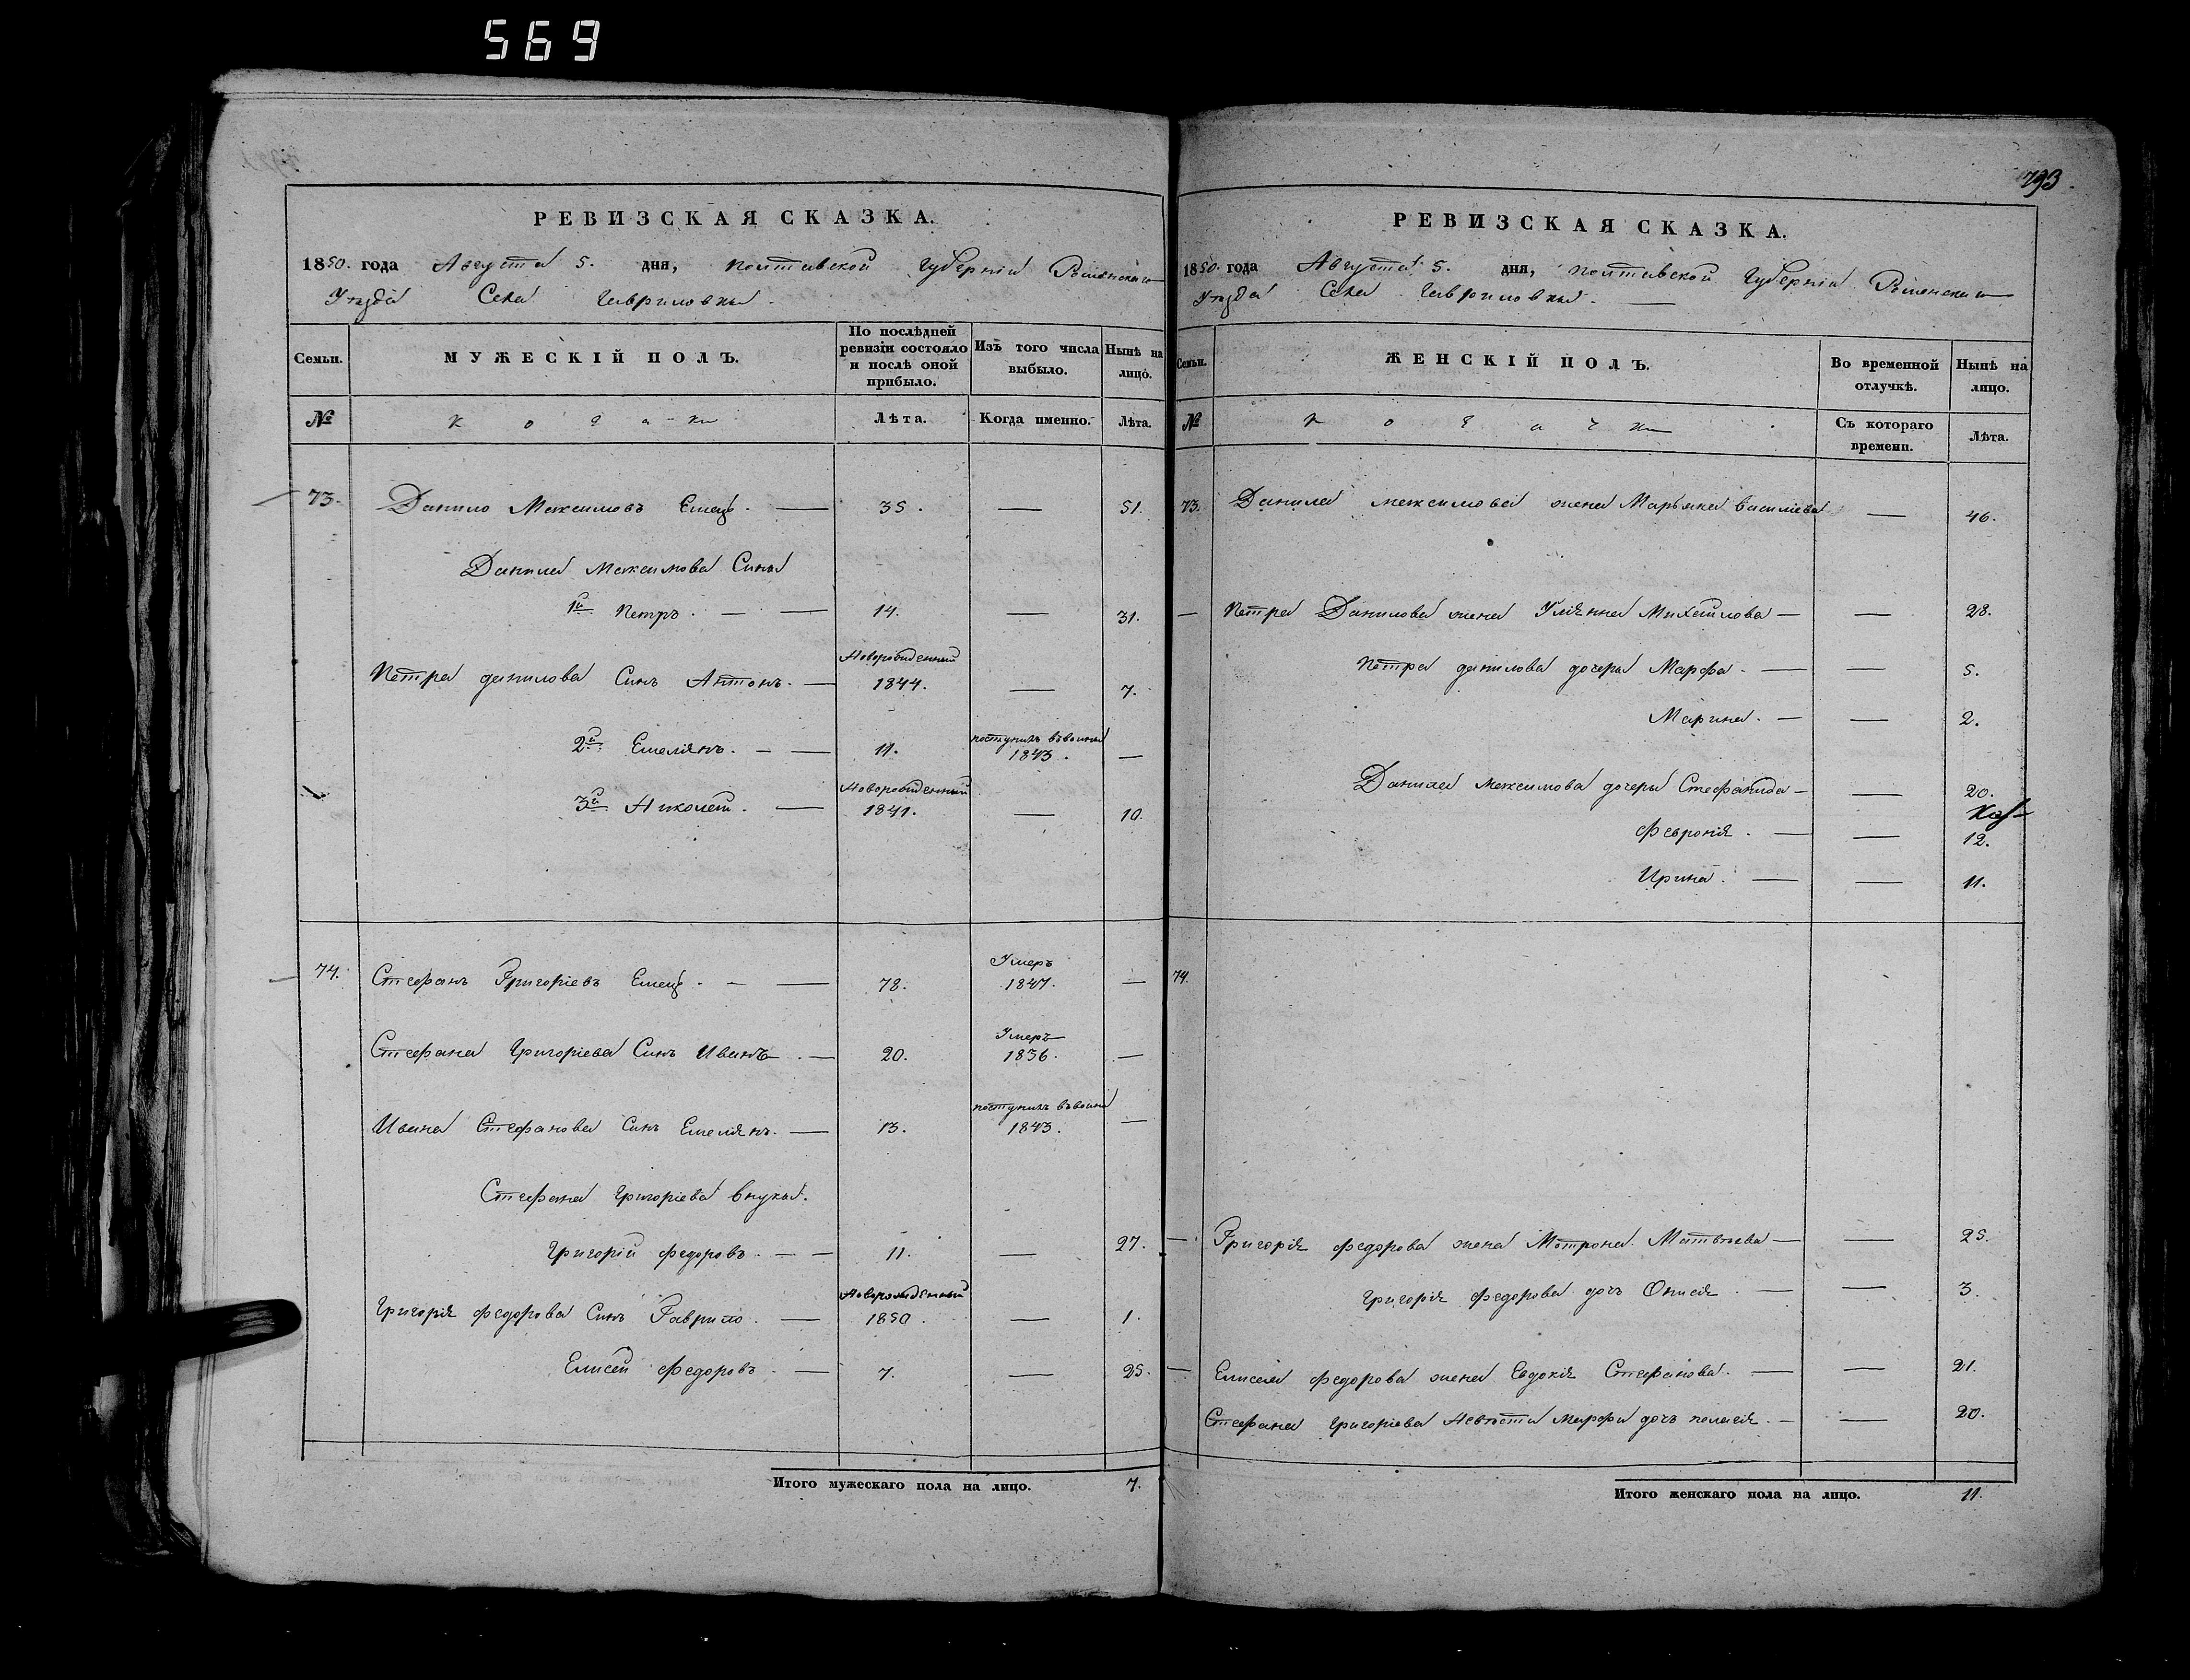 569
793.
РЕВИЗСКАЯ СКАЗКА.
1850. года Августа 5. дня, Полтавской Губернiи Роменскаго
Уѣзда Села Гавриловки.
Семьи.
МУЖЕСКІЙ ПОЛЪ.
По послѣдней ревизіи состояло и послѣ оной прибыло.
Изъ того числа выбыло.
Нынѣ на лицо.
№ Козаки Лѣта. Когда именно. Лѣта.
73. Данило Максимовъ Емецъ. — 35. — 51.
Данила Максимова Сины
1й Петръ. — 14. — 31.
Новорожденный
Петра данилова Синъ Антонъ. — 1844. — 7.
2й Емелiянъ. — 11. поступилъ въ воины 1843. —
Новорожденный
3й Николай. — 1841. — 10.
74. Стефанъ Григорiевъ Емецъ. — 78. Умеръ 1847. —
Стефана Григорiева Синъ Иванъ. — 20. Умеръ 1836. —
Ивана Стефанова Синъ Емелiянъ. — 13. поступилъ въ воины 1843. —
Стефана Григорiева внуки.
Григорiй Федоровъ. — 11. — 27.
Новорожденный
Григорiя Федорова Синъ Гаврило. — 1850. — 1.
Елисей Федоровъ. — 7. — 25.
Итого мужескаго пола на лицо. 7.
РЕВИЗСКАЯ СКАЗКА.
1850. года Августа 5. дня, Полтавской Губернiи Роменскаго
Уѣзда Села Гавриловки. —
Семьи.
ЖЕНСКІЙ ПОЛЪ.
Во временной отлучкѣ.
Нынѣ на лицо.
№ Козачки Съ котораго времени. Лѣта.
73. Данила Максимова жена Марьяна Василiева — 46.
— Петра Данилова жена Улiянна Михайлова — — 28.
Петра данилова дочери Марфа. — — 5.
Марина. — — 2.
Данила Максимова дочери Стефанида — — 20.
Феврония. — — 12.
Ирина. — — 11.
74.
— Григорiя Федорова жена Мотрона Матвѣева — — 25.
Григорiя Федорова дочь Онисiя. — — 3.
— Елисея Федорова жена Евдокiя Стефанова. — — 21.
Стефана Григорiева Невѣсти Марфи дочь Пелагiя. — — 20.
Итого женскаго пола на лицо. 11.